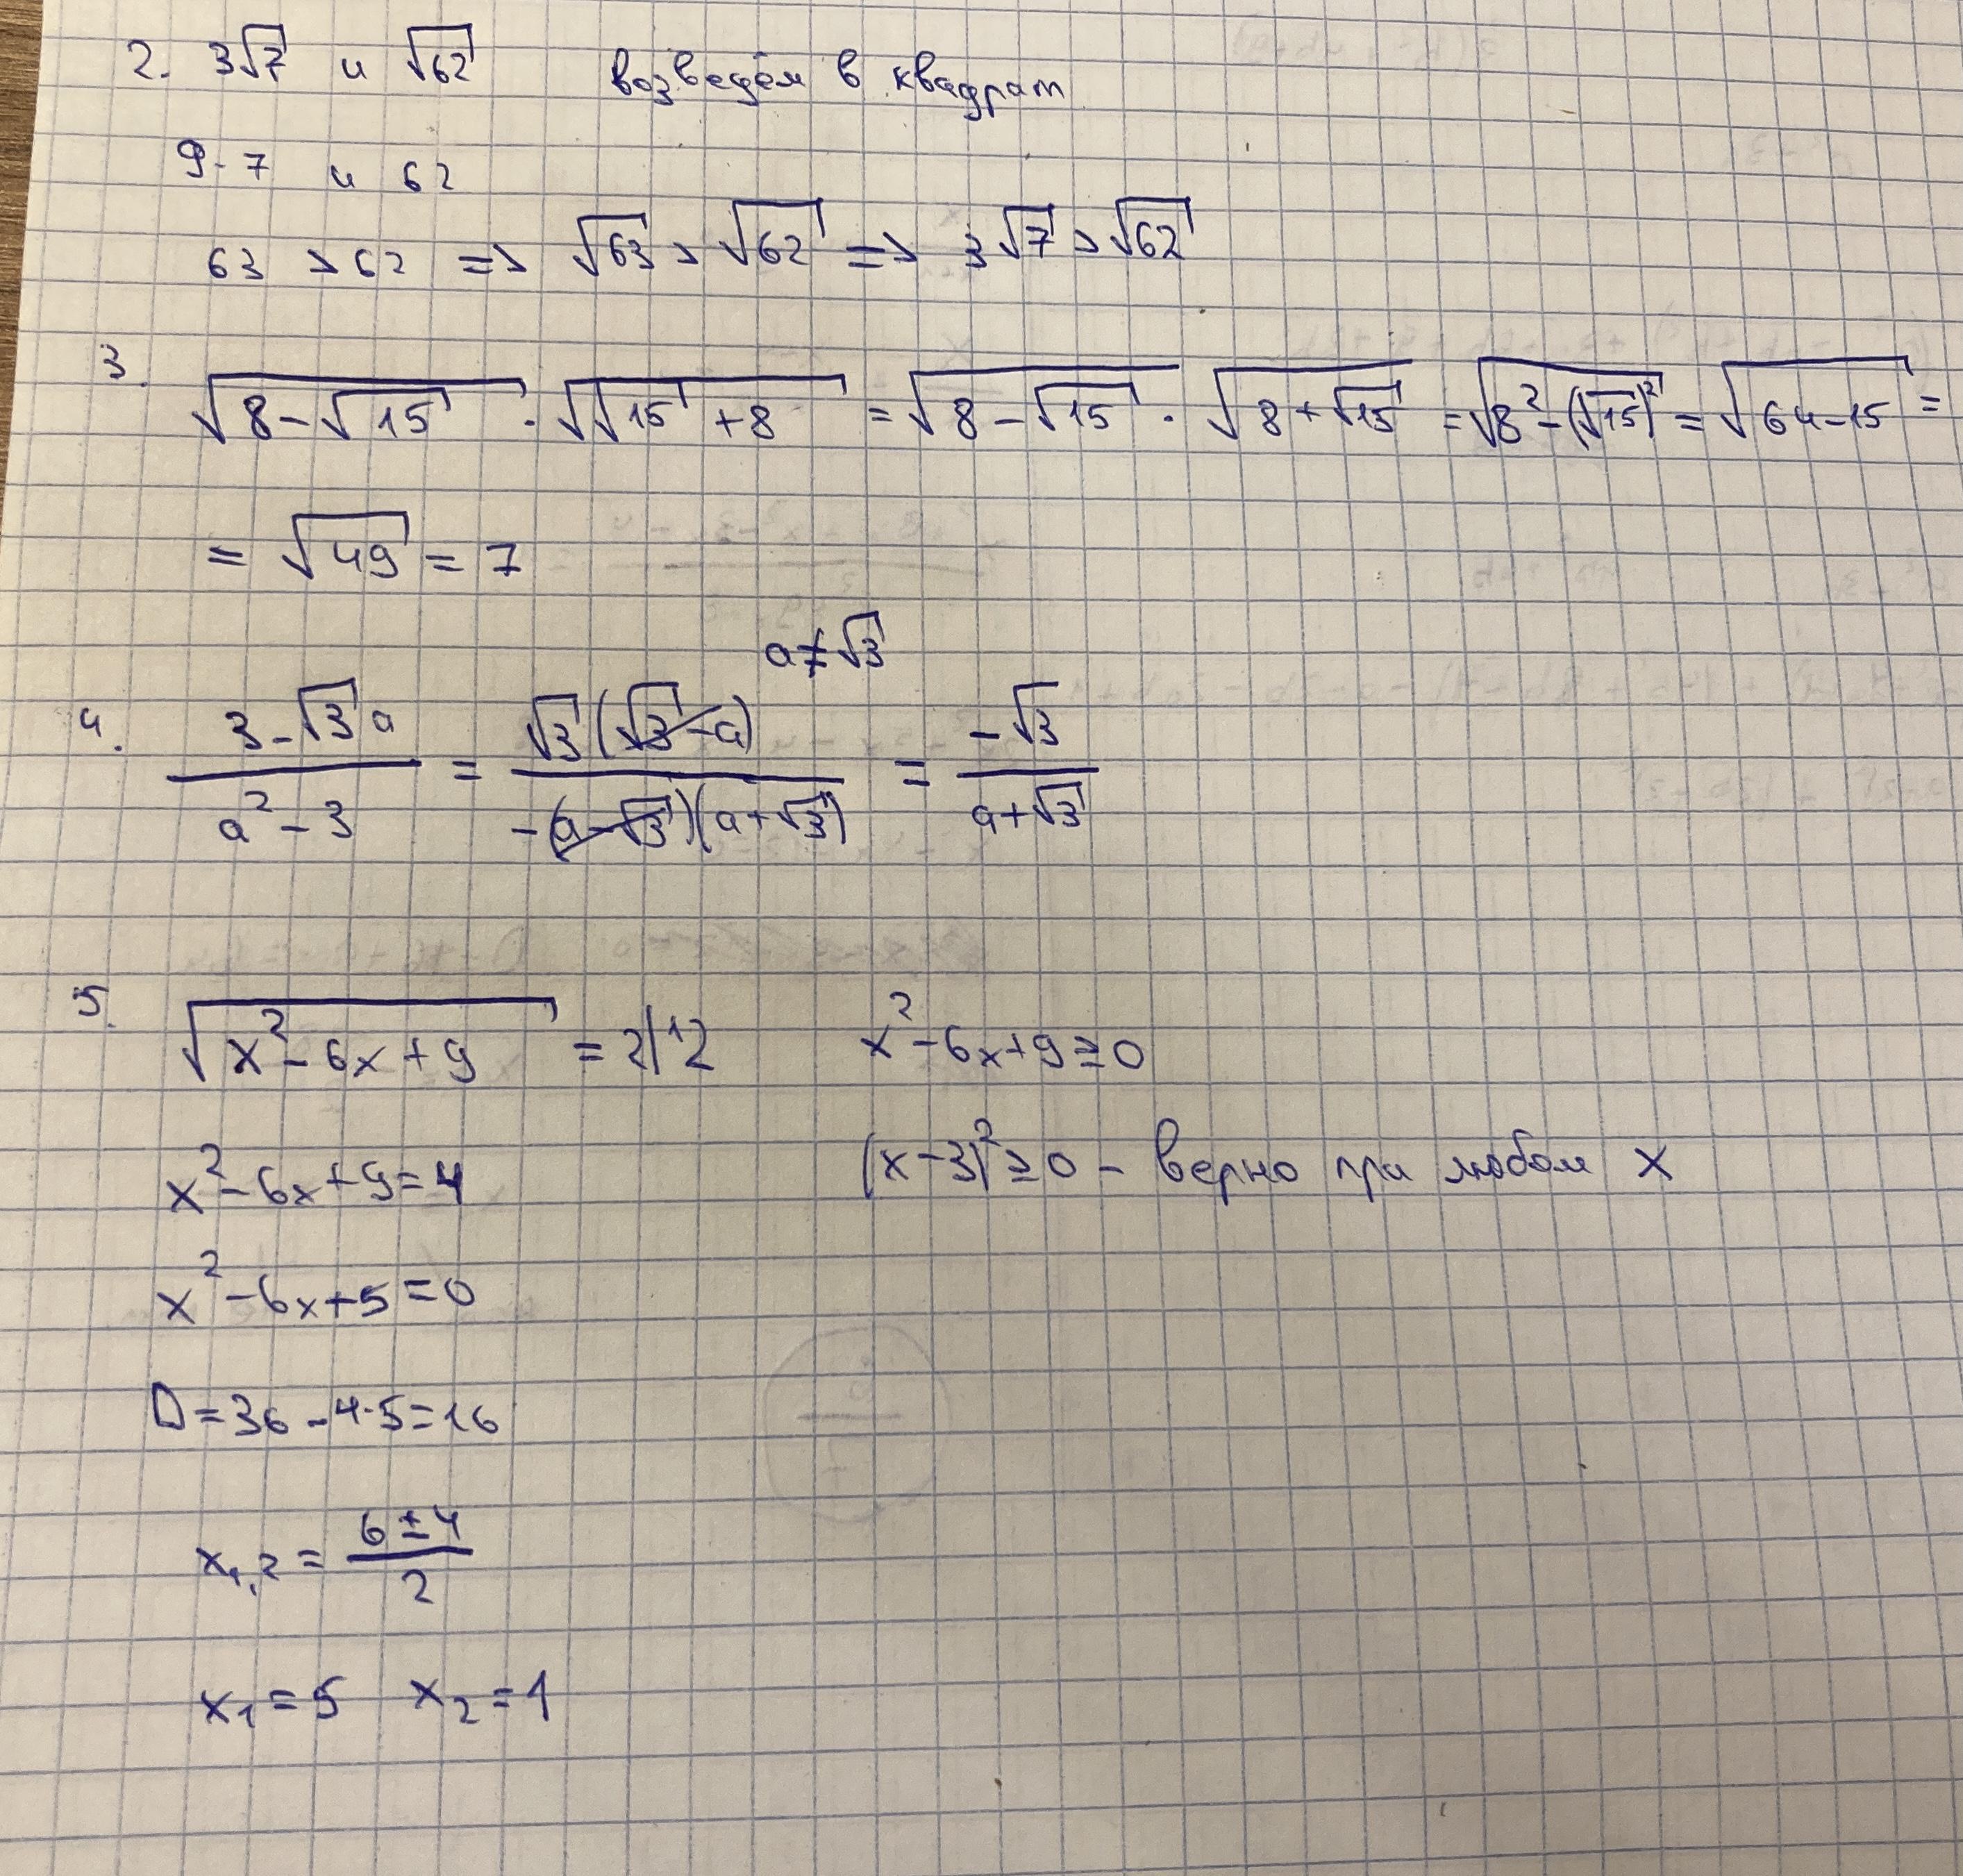 2. 3√7 и √62 возведём в квадрат
9·7 и 62
63 > 62 => √63 > √62 => 3√7 > √62
3. √(8-√15) · √(√15+8) = √(8-√15) · √(8+√15) = √(8²-(√15)²) = √(64-15) =
= √49 = 7
a≠√3
4. (3-√3a)/(a²-3) = (√3(√3-a))/(-(a-√3)(a+√3)) = (-√3)/(a+√3)
5. √(x²-6x+9) = 2|² x²-6x+9≥0
x²-6x+9=4 (x-3)²≥0 - верно при любом x
x²-6x+5=0
D=36-4·5=16
x₁,₂ = (6±4)/2
x₁=5 x₂=1